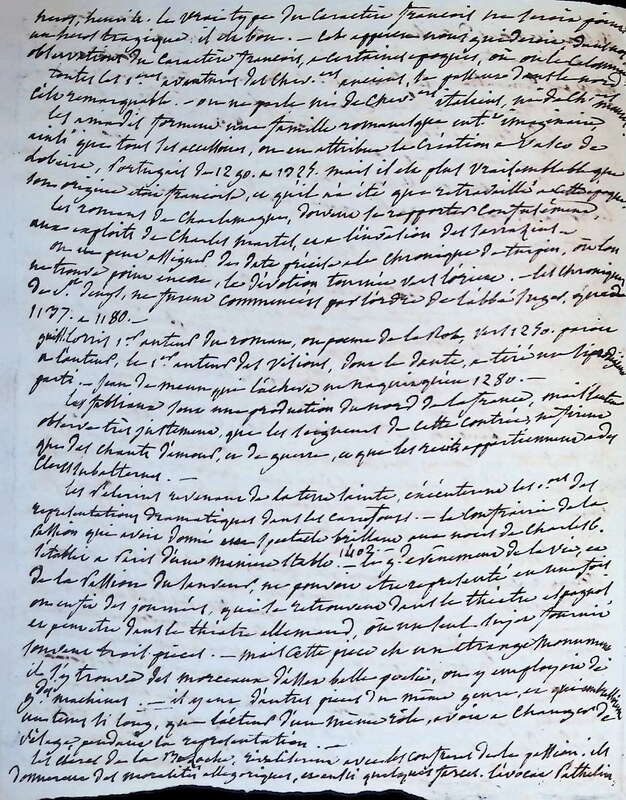 heros, humble. Le vrai type du caractère françois ne seroit point
un heros tragique, il est bon. — cet appercu nous
observations du caractère françois, a certaines epoques, ou
toutes les 1eres aventures des Chev.ers anciens, se passent dans le nord
cela est remarquable. — on ne parle ni de Chev.ers italiens, ni d'alle
Les amadis forment une famille romanesque ent.t imaginaire,
ainsi que tous les accessoires, on en attribue la Création a Vasco de
Lobeira, Portugais de 1290. a 1325. mais il est plus vraisemblable que
son origine etoit françoise, et qu'il n'a été que retravaillé a cette epoque
Les romans de Charlemagne, doivent se rapporter confusément
aux exploits de Charles martel, et a l'invasion des Sarrasins. —
on ne peut assigner de date précise a la chronique de turpin, où l'on
ne trouve point encore, la dévotion tournée vers l'orient. — les chroniques
de St. Denys, ne furent commencées par l'ordre de l'abbé Suger, qu'en
1137. a 1180. —
Guill. Lorris 1er auteur du roman, ou poeme de la Rose, vers 1240. paroit
a l'auteur, le 1er auteur des visions, dont le Dante, a tiré un si
parti. — Jean de meun, qui l'acheva ne naquit qu'en 1280. —
Les fabliaux sont une production du nord de la france, mais l'auteur
observe très justement, que les seigneurs de cette contrée, ne firent
que des chants d'amour, et de guerre, et que les récits appartiennent a des
Clercs subalternes. —
Les Pelerins revenant de la terre sainte, exécuterent les 1eres des
representations dramatiques dans les carrefours. — la confrairie de la
Passion qui avoit donné un spectacle brillant aux noces de Charles 6.
s'établit a Paris d'une manière stable. 1402. — le g.d evénement de la vie, et
de la Passion du Sauveur, ne pouvoit etre representé en une fois
on en fit des journées, que l'on retrouve dans le théatre espagnol
et peut etre dans le théatre allemand, où un seul sujet fournit
souvent trois pièces. — mais cette piece est un étrange monument
il s'y trouve des morceaux d'assez belle poésie, on y employoit de
g.des machines. — il y eut d'autres pieces du même genre, et qui
un tems si long, que l'acteur d'un meme rôle, avoit a changer de
visage, pendant la representation. —
Les Clercs de la Bazoche, rivaliserent avec les confreres de la passion. ils
donnerent des moralités allegoriques, et enfin quelques farces. L'avocat Pathelin